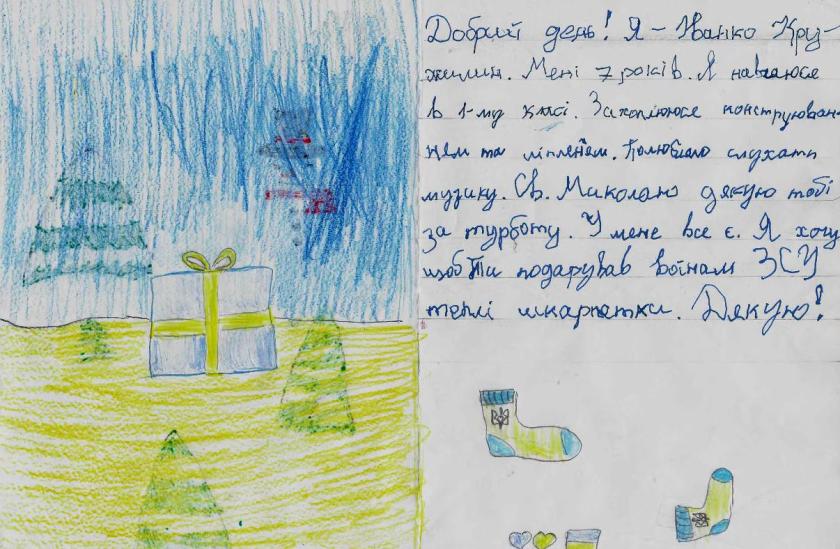 Добрий день! Я - Іванко Кру-
жилин. Мені 7 років. Я навчаюся
в 1-му класі. Захоплююсе конструюван-
ням та ліпленем. Полюбляю слухати
музику. Св. Миколаю дякую тобі
за турботу. У мене все є. Я хочу
щоб Ти подарував воїнам ЗСУ
теплі шкарпетки. Дякую!